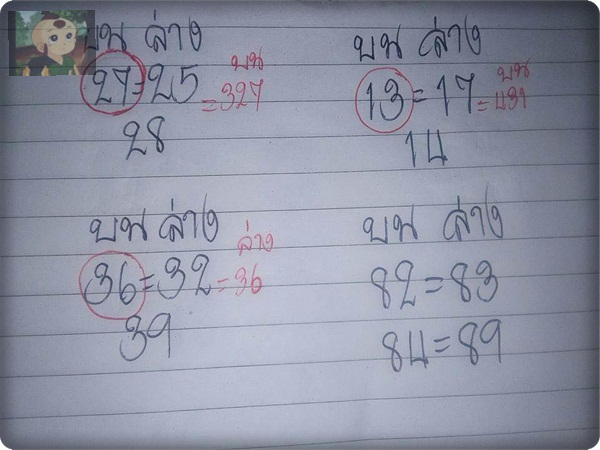 บน ล่าง
27=25 =327 บน
28
บน ล่าง
13=17 =431 บน
14
บน ล่าง
36=32 =36 ล่าง
39
บน ล่าง
82=83
84=89